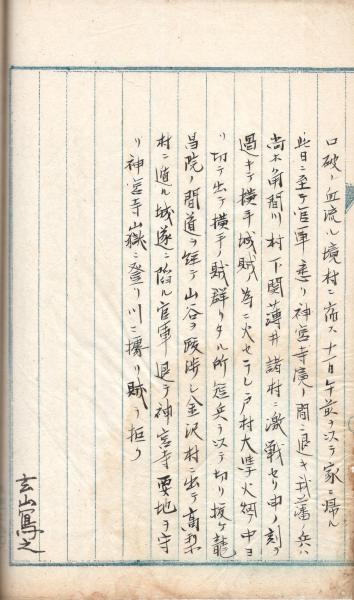 口破ノ血流ル境村ニ宿ス十一日午前ヲ以テ家ニ帰ル
此日ニ至テ官軍悉ク神宮寺廣ノ間ニ退キ我藩ノ兵ハ
尚不角間川村下関薄井諸村ニ激戦セリ申ノ刻ヲ
過キテ横手城賊ノ為ニ火セラレ戸村大學火焔ノ中ヨ
リ切テ出テ横手ノ賊群リタル所短兵ヲ以テ切リ抜ケ龍
昌院ノ間道ヲ経テ山谷ヲ跋渉シ金沢村ニ出テ高梨
村ニ遁ル城遂ニ陥ル官軍退テ神宮寺要地ヲ守
リ神宮寺嶽ニ登リ川ニ據リ賊ヲ拒ク
玄山寫之